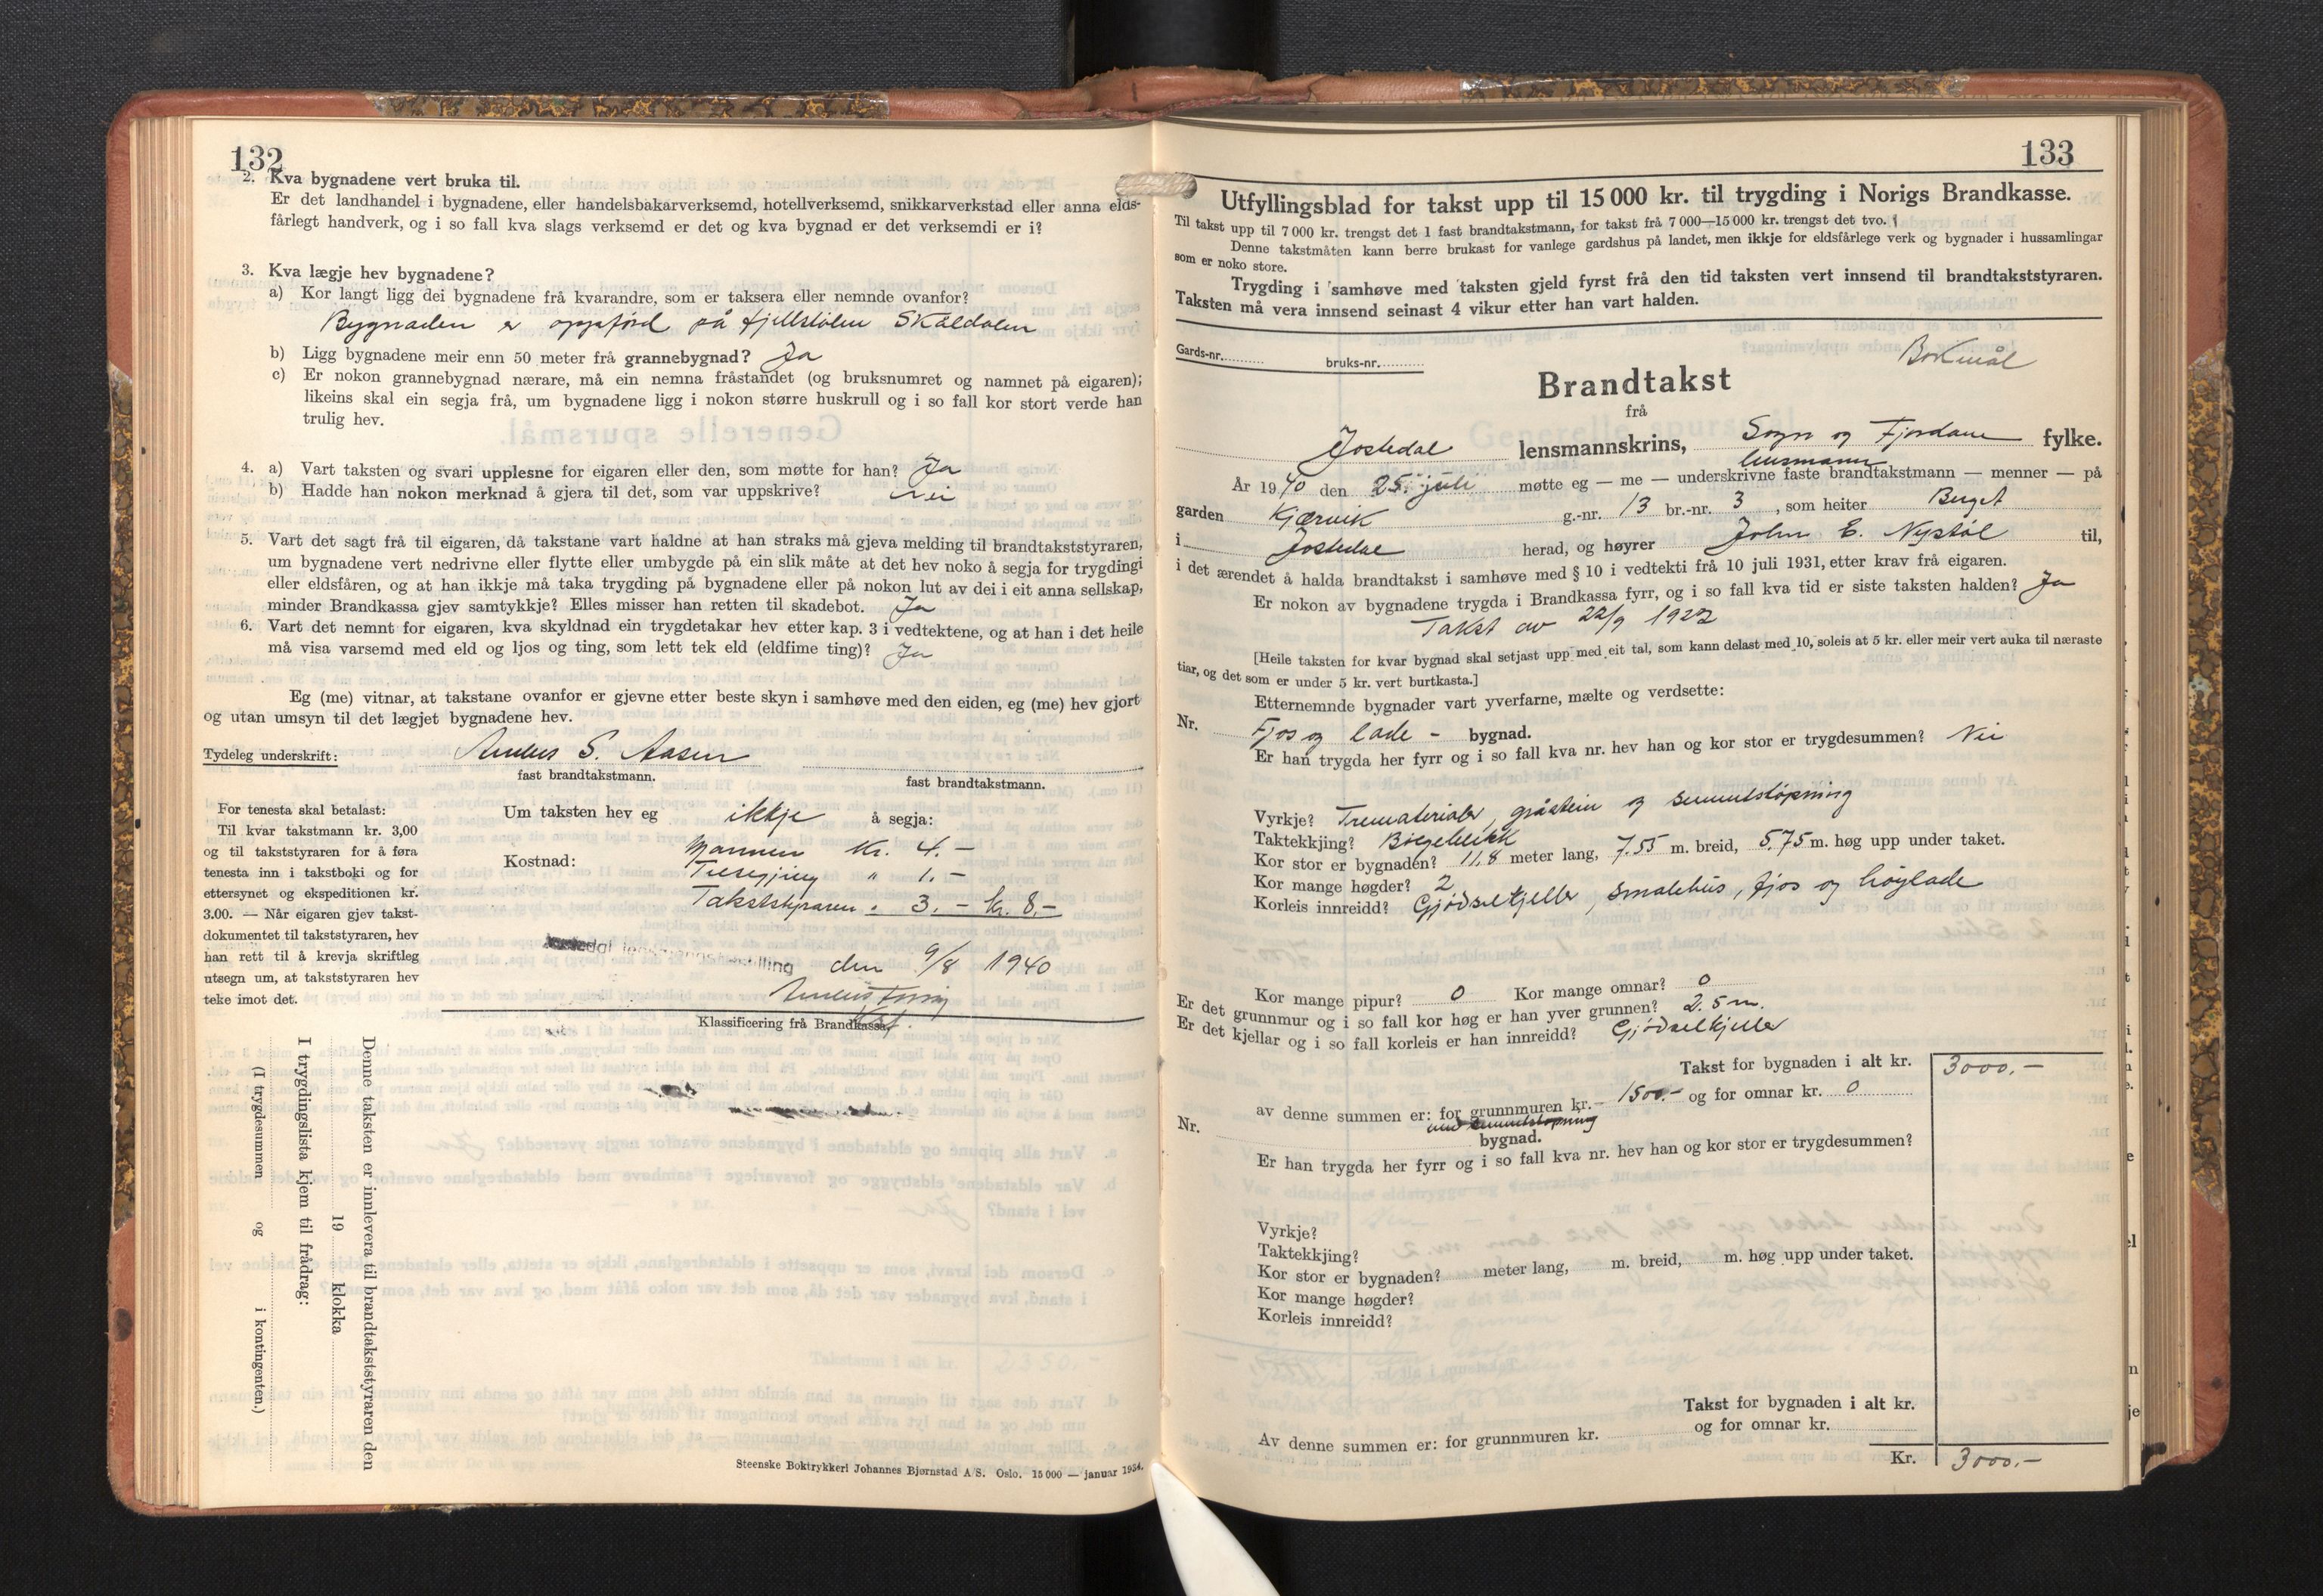 132
2. Kva bygnadene vert bruka til.
Er det landhandel i bygnadene, eller handelsbakarverksemd, hotellverksemd, snikkarverkstad eller anna elds-
fårlegt handverk, og i so fall kva slags verksemd er det og kva bygnad er det verksemdi er i?
3. Kva lægje hev bygnadene?
a) Kor langt ligg dei bygnadene frå kvarandre, som er taksera eller nemnde ovanfor?
Bygnaden er oppførd på fjellstølen Skåldalen
b) Ligg bygnadene meir enn 50 meter frå grannebygnad? Ja
c) Er nokon grannebygnad nærare, må ein nemna fråstandet (og bruksnumret og namnet på eigaren);
likeins skal ein segja frå, um bygnadene ligg i nokon større huskrull og i so fall kor stort verde han
trulig hev.
4. a) Vart taksten og svari upplesne for eigaren eller den, som møtte for han? Ja
b) Hadde han nokon merknad å gjera til det, som var uppskrive? Nei
5. Vart det sagt frå til eigaren, då takstane vart haldne at han straks må gjeva melding til brandtakststyraren,
um bygnadene vert nedrivne eller flytte eller umbygde på ein slik måte at det hev noko å segja for trygdingi
eller eldsfåren, og at han ikkje må taka trygding på bygnadene eller på nokon lut av dei i eit anna sellskap,
minder Brandkassa gjev samtykkje? Elles misser han retten til skadebot. Ja
6. Vart det nemnt for eigaren, kva skyldnad ein trygdetakar hev etter kap. 3 i vedtektene, og at han i det heile
må visa varsemd med eld og ljos og ting, som lett tek eld (eldfime ting)? Ja
Eg (me) vitnar, at takstane ovanfor er gjevne etter beste skyn i samhøve med den eiden, eg (me) hev gjort
og utan umsyn til det lægjet bygnadene hev.
Tydeleg underskrift: Anders S. Aasen
fast brandtakstmann. fast brandtakstmann.
For tenesta skal betalast:
Til kvar takstmann kr. 3,00
og til takststyraren for å føra
tenesta inn i takstboki og for
ettersynet og ekspeditionen kr.
3.00. — Når eigaren gjev takst-
dokumentet til takststyraren, hev
han rett til å krevja skriftleg
utsegn um, at takststyraren hev
teke imot det.
Um taksten hev eg ikkje å segja:
Kostnad: Mannen kr. 4.-
Tilsegjing " 1.-
Takststyraren " 3.- kr. 8.-
den 9/8 1940
Klassificering frå Brandkassa.
Denne taksten er innlevera til brandtakststyraren den
19 klokka
I trygdingslista kjem til frådrag:
(I trygdesummen og i kontingenten.)
Steenske Boktrykkeri Johannes Bjørnstad A/S. Oslo. 15 000 — januar 1934.
133
Utfyllingsblad for takst upp til 15 000 kr. til trygding i Norigs Brandkasse.
Til takst upp til 7 000 kr. trengst det 1 fast brandtakstmann, for takst frå 7 000—15 000 kr. trengst det tvo.
Denne takstmåten kann berre brukast for vanlege gardshus på landet, men ikkje for eldsfårlege verk og bygnader i hussamlingar
som er noko store.
Trygding i samhøve med taksten gjeld fyrst frå den tid taksten vert innsend til brandtakststyraren.
Taksten må vera innsend seinast 4 vikur etter han vart halden.
Gards-nr. bruks-nr.
Bokmål
Brandtakst
frå
Jostedal lensmannskrins, Sogn og Fjordane fylke.
lensmann
År 1940 den 25. juli møtte eg — me — underskrivne faste brandtakstmann — menner — på
garden Kjærvik g.-nr. 13 br.-nr. 3 , som heiter Berget
i Jostedal herad, og høyrer John E. Nystøl til,
i det ærendet å halda brandtakst i samhøve med § 10 i vedtekti frå 10 juli 1931, etter krav frå eigaren.
Er nokon av bygnadene trygda i Brandkassa fyrr, og i so fall kva tid er siste taksten halden? Ja
Takst av 22/9 1922
[Heile taksten for kvar bygnad skal setjast upp med eit tal, som kann delast med 10, soleis at 5 kr. eller meir vert auka til næraste
tiar, og det som er under 5 kr. vert burtkasta.]
Etternemnde bygnader vart yverfarne, mælte og verdsette:
Nr. Fjos og lade - bygnad.
Er han trygda her fyrr og i so fall kva nr. hev han og kor stor er trygdesummen? Nei
Vyrkje? Trematerialer, gråstein og sementstøpning
Taktekkjing? Bølgeblikk
Kor stor er bygnaden? 11,8 meter lang, 7.55 m. breid, 5.75 m. høg upp under taket.
Kor mange høgder? 2
Korleis innreidd? Gjødselkjeller, smalehus, fjos og høylade
Kor mange pipur? 0 Kor mange omnar? 0
Er det grunnmur og i so fall kor høg er han yver grunnen? 2.5 m.
Er det kjellar og i so fall korleis er han innreidd? Gjødselkjeller
Takst for bygnaden i alt kr. 3000.-
av denne summen er: for grunnmuren kr. 1500.- og for omnar kr. 0
med sementstøpning
Nr. bygnad.
Er han trygda her fyrr og i so fall kva nr. hev han og kor stor er trygdesummen?
Vyrkje?
Taktekkjing?
Kor stor er bygnaden? meter lang, m. breid, m. høg upp under taket.
Kor mange høgder?
Korleis innreidd?
Takst for bygnaden i alt kr.
Av denne summen er: for grunnmuren kr. og for omnar kr.
Kr. 3000.-